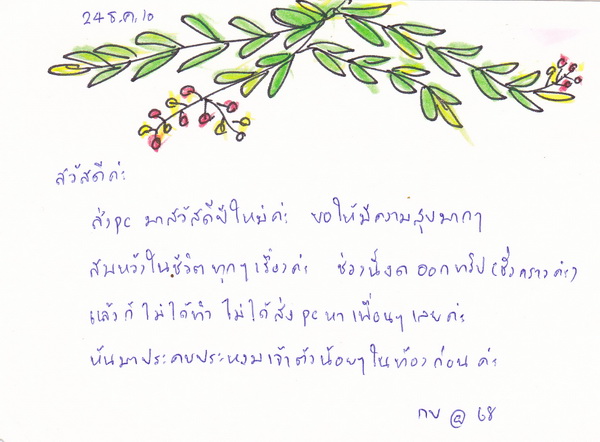 24 ธ.ค. 10
สวัสดีค่ะ
ส่ง pc มาสวัสดีปีใหม่ค่ะ ขอให้มีความสุขมากๆ
สมหวังในชีวิตทุกๆเรื่องค่ะ ช่วงนี้งดออกทริป (ชั่วคราวค่ะ)
แล้วก็ไม่ได้ทำ ไม่ได้ส่ง pc หาเพื่อนๆเลยค่ะ
หันมาประคบประหงมเจ้าตัวน้อยๆในท้องก่อนค่ะ
กบ @ 68